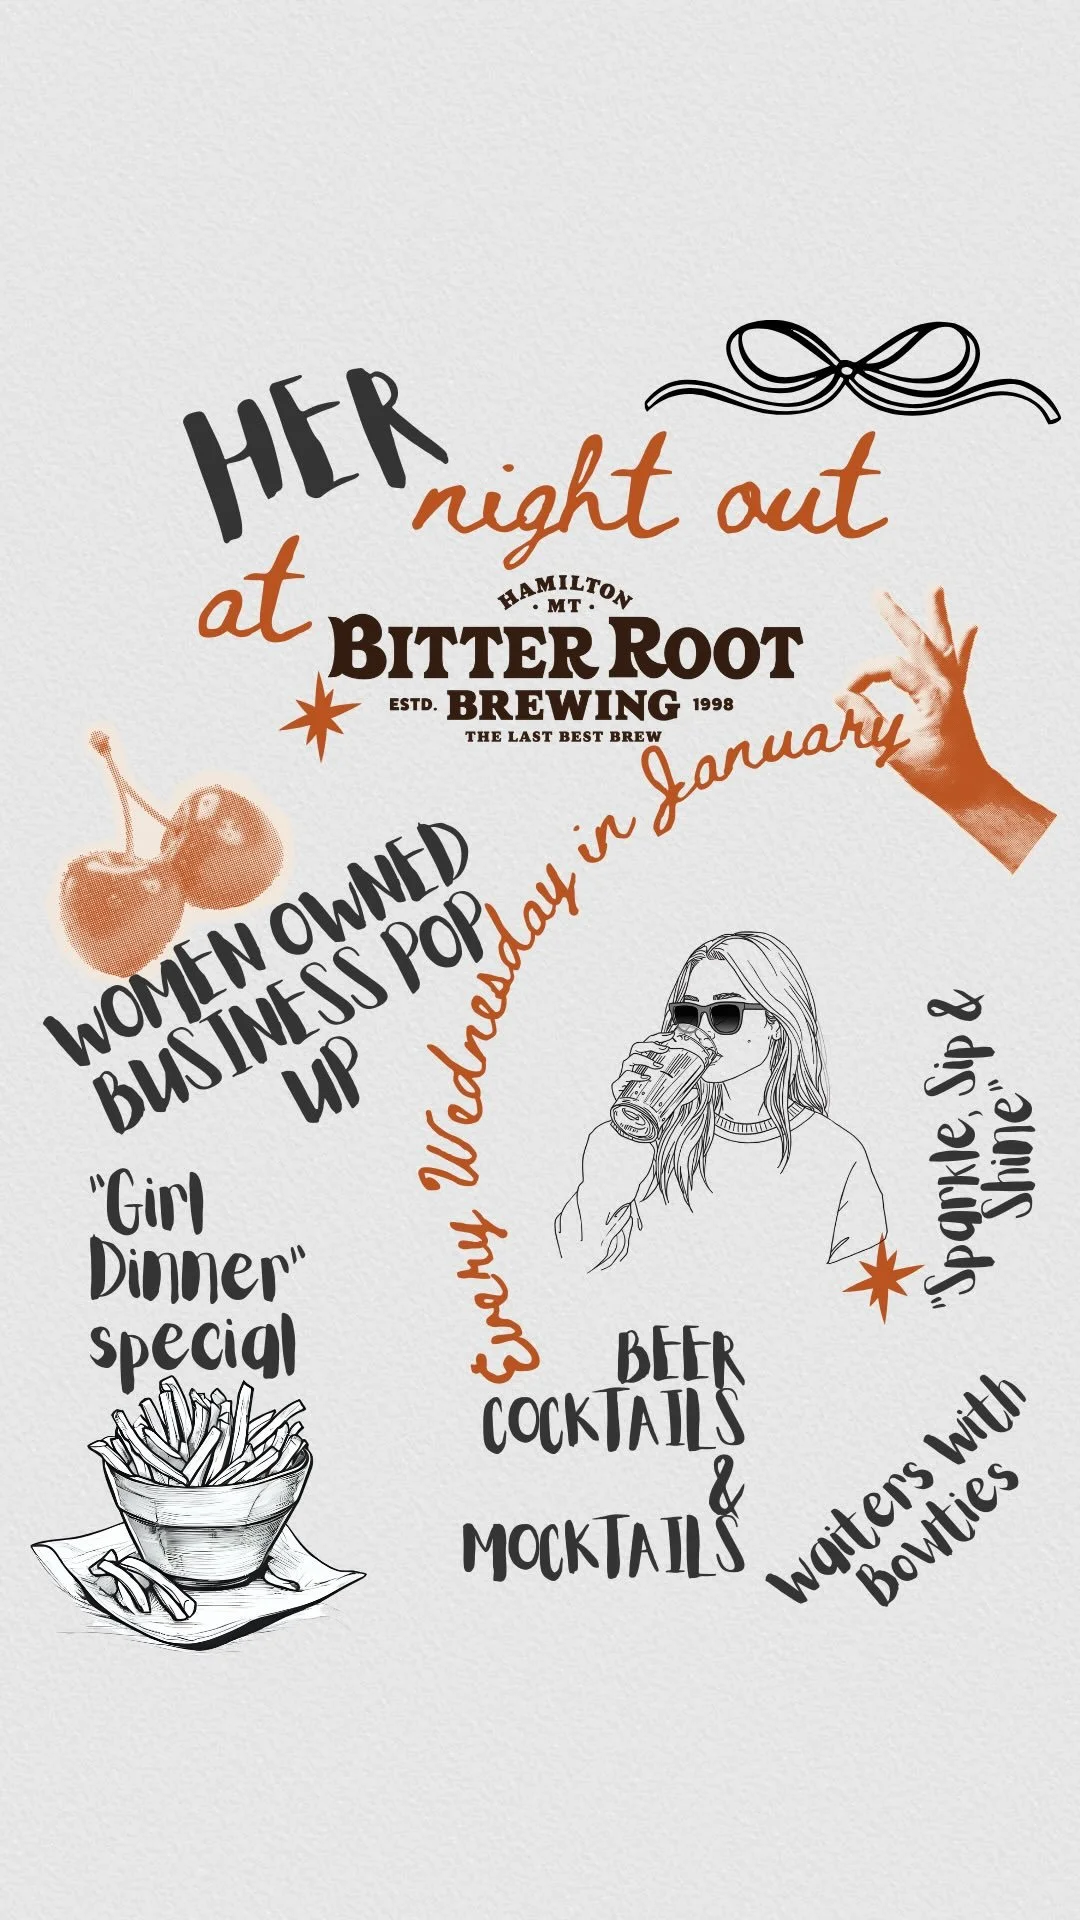 HER
night out
at
HAMILTON
· MT ·
BITTER ROOT
ESTD. BREWING 1998
THE LAST BEST BREW
Every Wednesday in January
WOMEN OWNED
BUSINESS POP
UP
"Girl
Dinner"
special
"Sparkle, Sip &
Shine"
BEER
COCKTAILS
&
MOCKTAILS
waiters with
Bowties